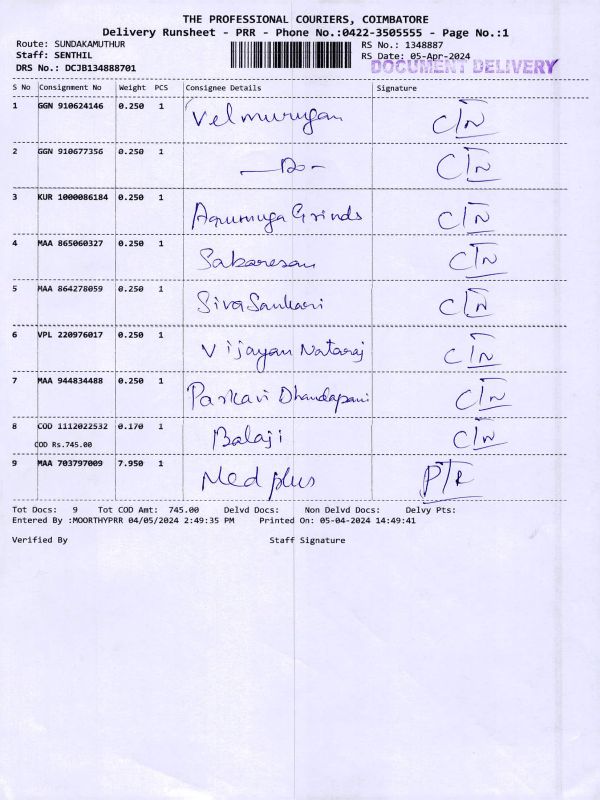 THE PROFESSIONAL COURIERS, COIMBATORE
Delivery Runsheet - PRR - Phone No.:0422-3505555 - Page No.:1
Route: SUNDAKAMUTHUR RS No.: 1348887
Staff: SENTHIL RS Date: 05-Apr-2024
DRS No.: DCJB134888701 DOCUMENT DELIVERY
S No Consignment No Weight PCS Consignee Details Signature
1 GGN 910624146 0.250 1 Velmurugan CTN
2 GGN 910677356 0.250 1 —Do- CTN
3 KUR 1000086184 0.250 1 Arumuga Grinds CTN
4 MAA 865060327 0.250 1 Sabaresan CTN
5 MAA 864278059 0.250 1 Siva Sankari CTN
6 VPL 220976017 0.250 1 Vijayan Nataraj CTN
7 MAA 944834488 0.250 1 Parkavi Dhandapani CTN
8 COD 1112022532 0.170 1 Balaji CTN
COD Rs.745.00
9 MAA 703797009 7.950 1 Med plus PTR
Tot Docs: 9 Tot COD Amt: 745.00 Delvd Docs: Non Delvd Docs: Delvy Pts:
Entered By :MOORTHYPRR 04/05/2024 2:49:35 PM Printed On: 05-04-2024 14:49:41
Verified By Staff Signature